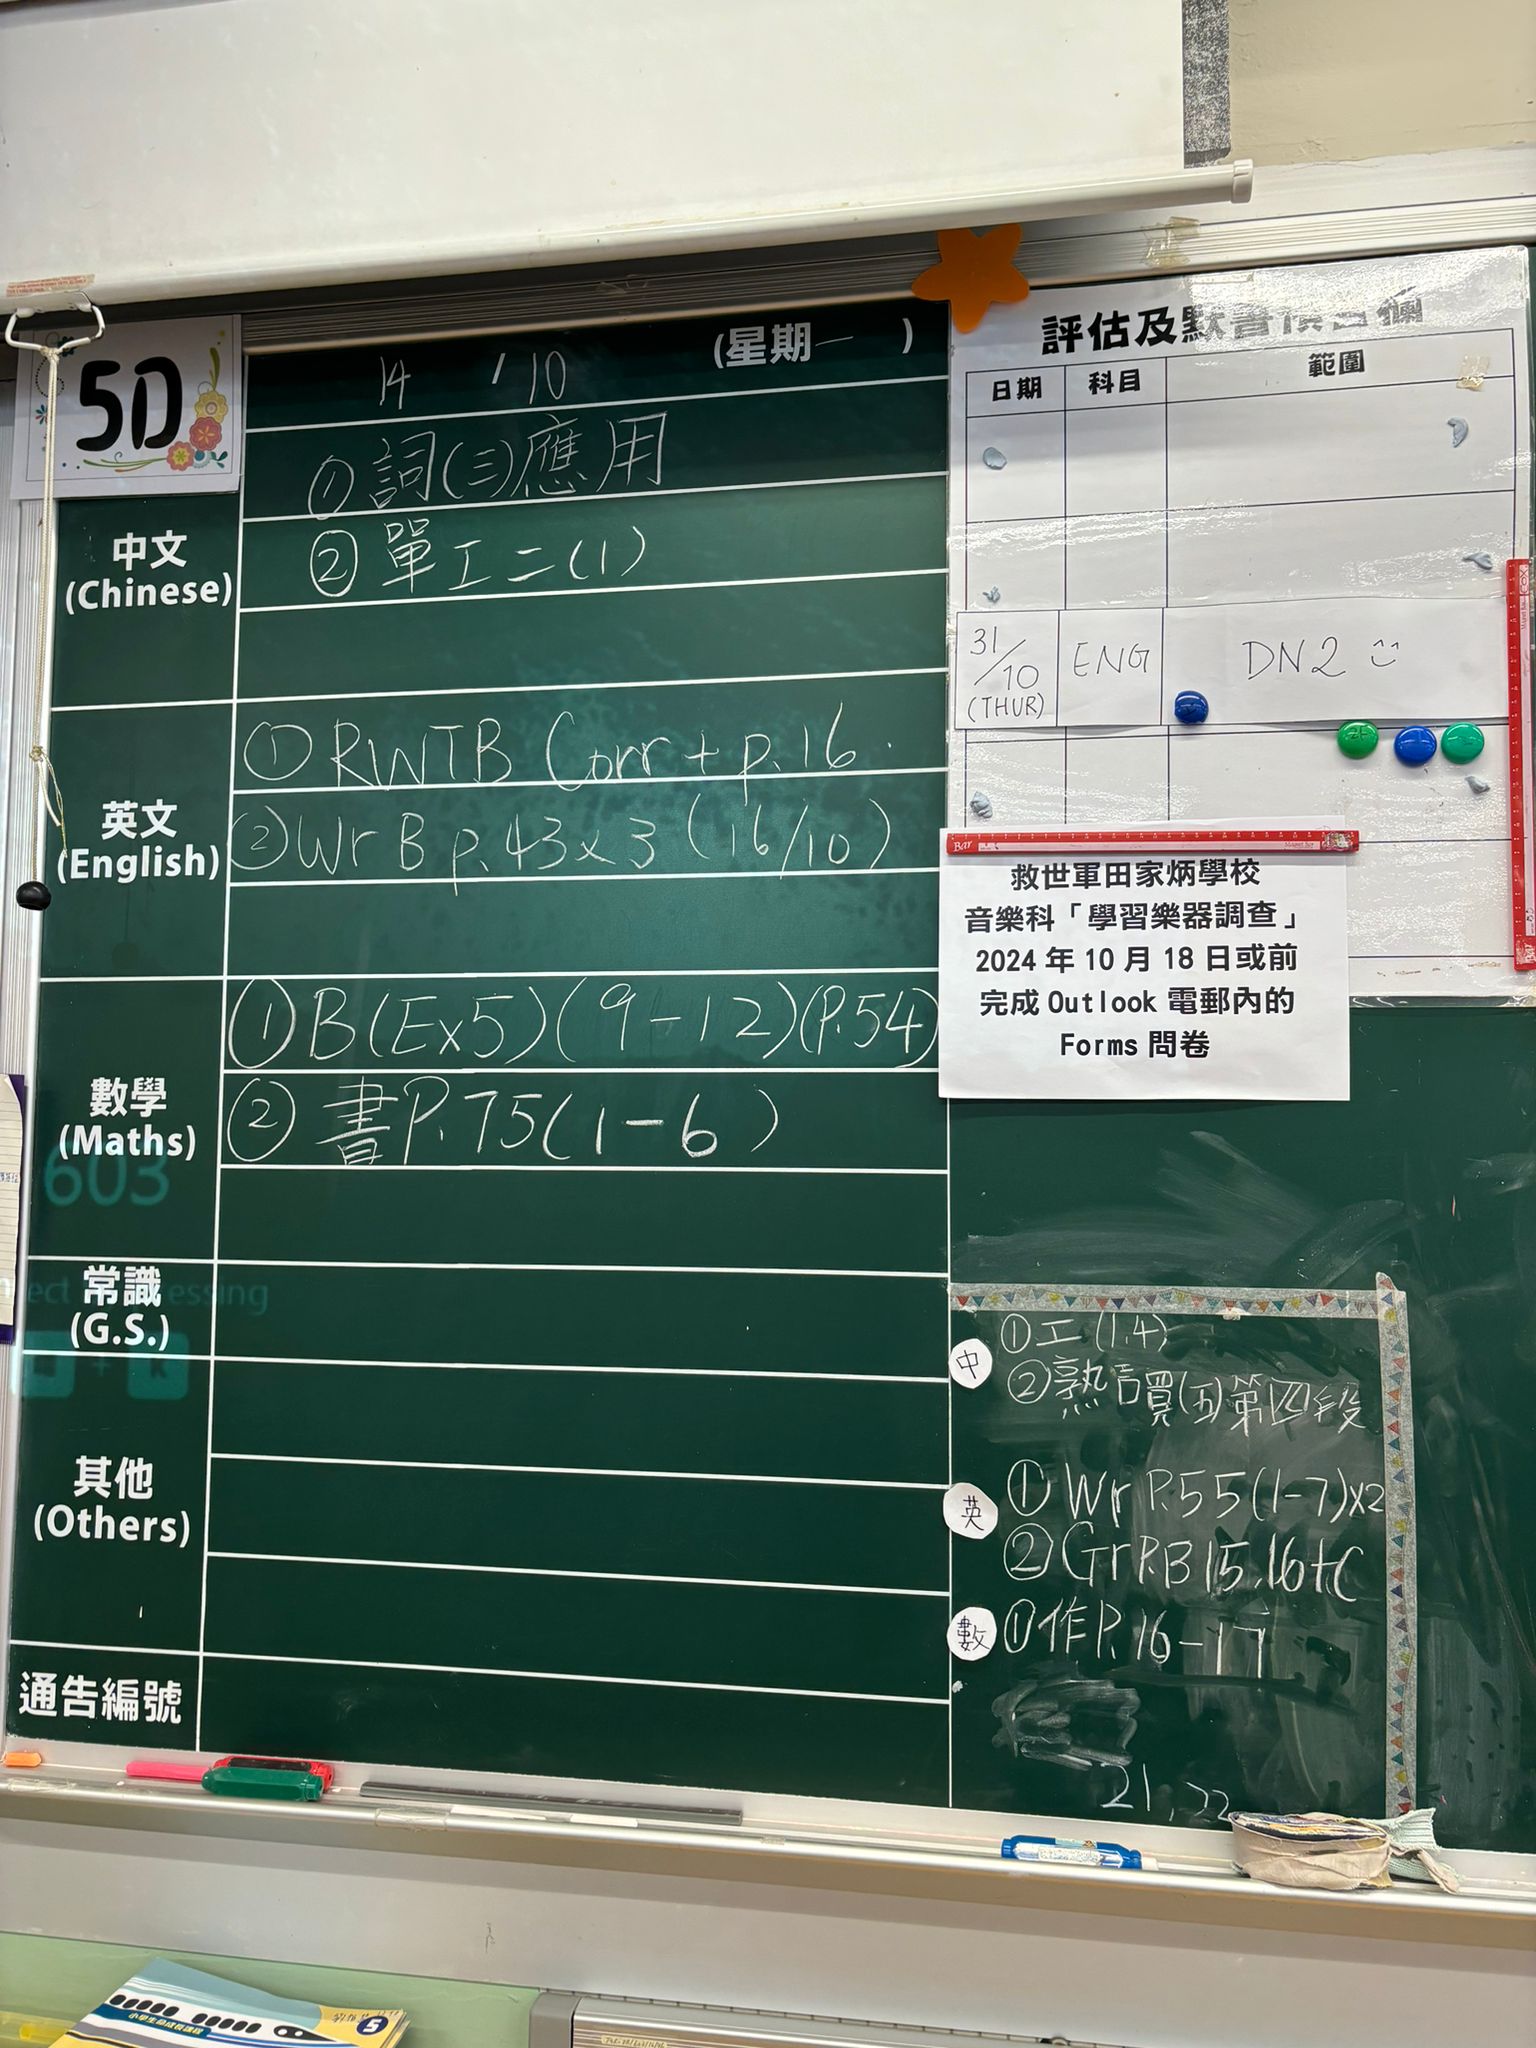 5D
14 / 10 (星期一 )
中文
(Chinese)
① 詞(三)應用
② 單工二(1)
英文
(English)
① RWTB Corr + p.16
② Wr B p.43x3 (16/10)
數學
(Maths)
① B(Ex5)(9-12)(P.54)
② 書P.75(1-6)
常識
(G.S.)
其他
(Others)
通告編號
評估及默書預告欄
日期 科目 範圍
31/10 (THUR) ENG DN2
救世軍田家炳學校
音樂科「學習樂器調查」
2024 年 10 月 18 日或前
完成 Outlook 電郵內的
Forms 問卷
603
中 ①工 (1.4)
②熟讀(五)第四段
英 ① Wr P.55(1-7)x2
② Gr P.B15,16+C
數 ①作P.16-17
21,22
小學生命成長課程
5